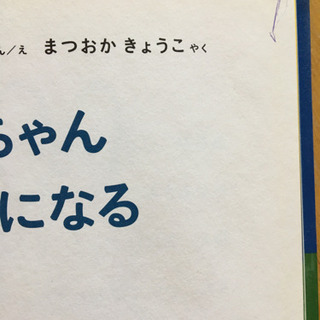 ん/え まつおか きょうこ やく
ちゃん
になる